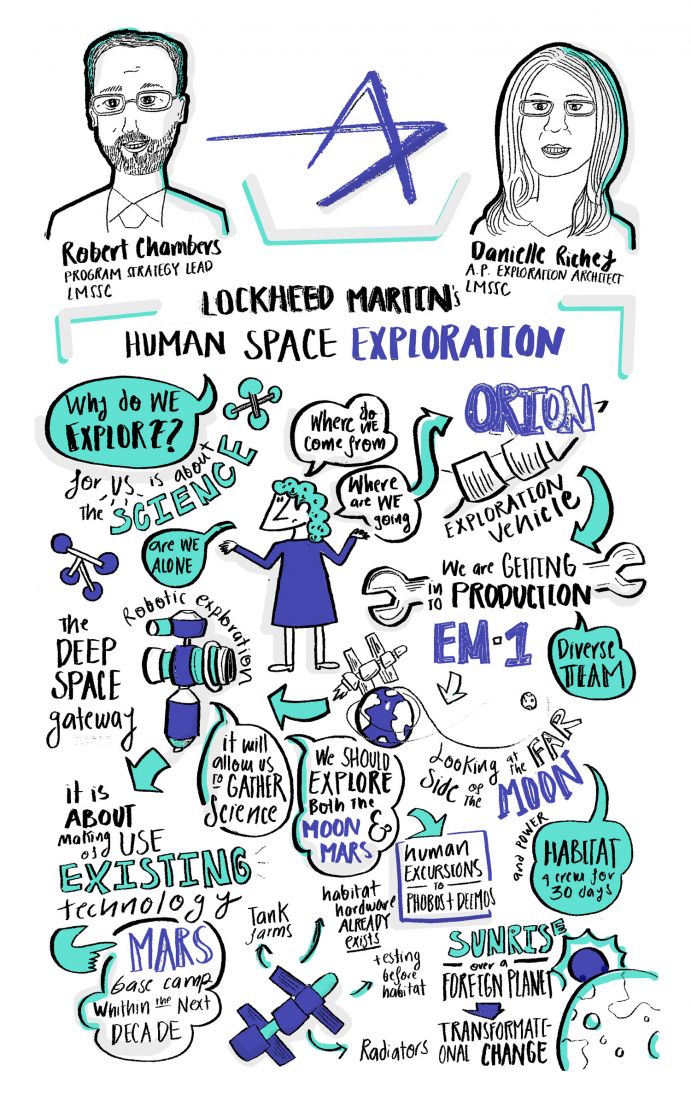 Robert Chambers
PROGRAM STRATEGY LEAD
LMSSC
Danielle Richey
A.P. EXPLORATION ARCHITECT
LMSSC
LOCKHEED MARTIN's
HUMAN SPACE EXPLORATION
Why do WE
EXPLORE?
for US is about
the SCIENCE
Where do WE
come from
Where
are WE
going
are WE
ALONE
ORION
EXPLORATION
vehicle
We are GETTING
IN TO PRODUCTION
EM-1
Diverse
TEAM
Robotic exploration
THE
DEEP
SPACE
gateway
it will
allow us
to GATHER
Science
We SHOULD
EXPLORE
Both the
MOON &
MARS
Looking at the FAR
Side of the MOON
and POWER
HABITAT
4 crew for
30 days
it is
ABOUT
making
of USE
EXISTING
technology
human
EXCURSIONS
TO
PHOBOS + DEIMOS
MARS
base camp
Whithin the Next
DECADE
Tank
farms
habitat
hardware
ALREADY
exists
testing
before
habitat
Radiators
SUNRISE
over a
FOREIGN PLANET
TRANSFORMATI-
ONAL CHANGE